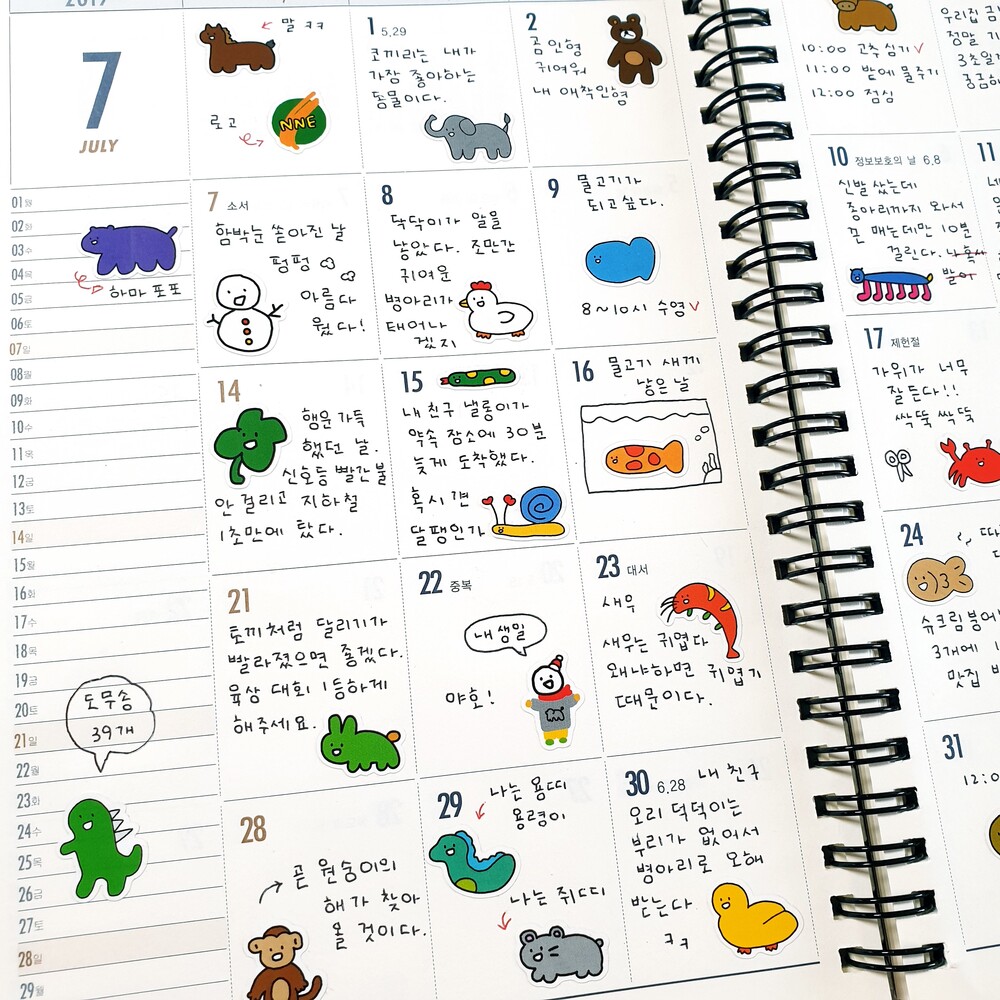 2019
7
JULY
말 ㅋㅋ
로고
NNE
1 5,29
코끼리는 내가
가장 좋아하는
동물이다.
2
곰인형
귀여워
내 애착인형
10:00 고추심기
11:00 밭에 물주기
12:00 점심
우리집
정말
3초일
궁금
01 월
02 화
03 수
04 목
05 금
06 토
07 일
08 월
09 화
10 수
11 목
12 금
13 토
14 일
15 월
16 화
17 수
18 목
19 금
20 토
21 일
22 월
23 화
24 수
25 목
26 금
27 토
28 일
29 월
하마 포포
도무송
39개
7 소서
함박눈 쏟아진 날
펑펑
아름다
웠다!
8
닥닥이가 알을
낳았다. 조만간
귀여운
병아리가
태어나
겠지
9
물고기가
되고싶다.
8~10시 수영
10 정보보호의 날 6,8
신발 샀는데
종아리까지 와서
끈 매는데만 10분
걸린다.
11
14
행운 가득
했던 날.
신호등 빨간불
안 걸리고 지하철
1초만에 탔다.
15
내 친구 낼롱이가
약속 장소에 30분
늦게 도착했다.
혹시 걘
달팽인가
16
물고기 새끼
낳은 날
17 제헌절
가위가 너무
잘든다!!
싹뚝 싹뚝
21
토끼처럼 달리기가
빨라졌으면 좋겠다.
육상 대회 1등하게
해주세요.
22 중복
내 생일
야호!
23 대서
새우
새우는 귀엽다
왜냐하면 귀엽기
때문이다.
24
슈크림붕어
3개에
맛집
28
곧 원숭이의
해가 찾아
올 것이다.
29
나는 용띠
용령이
나는 쥐띠
30 6,28 내 친구
오리 덕덕이는
부리가 없어서
병아리로 오해
받는다
ㅋㅋ
31
12:0